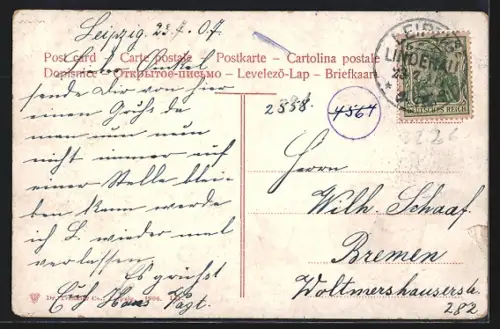 Leipzig 23.7.07.
Post card – Carte postale – Postkarte – Cartolina postale
Dopisnice – Открытое письмо – Levelező-Lap – Briefkaart
Lieber Onkel
sende Dir von hier
einen Gruß da
man nun
nicht immer auf
einer Stelle blei-
ben kann werde
ich L. wieder mal
verlassen.
Es grüßt
Vogt.
LEIPZIG
LINDENAU
23.7
DEUTSCHES REICH
2338.
4564
Herrn
Wilh. Schaaf.
Bremen
Woltmershauserstr.
282
Dr. & Co., 1906.